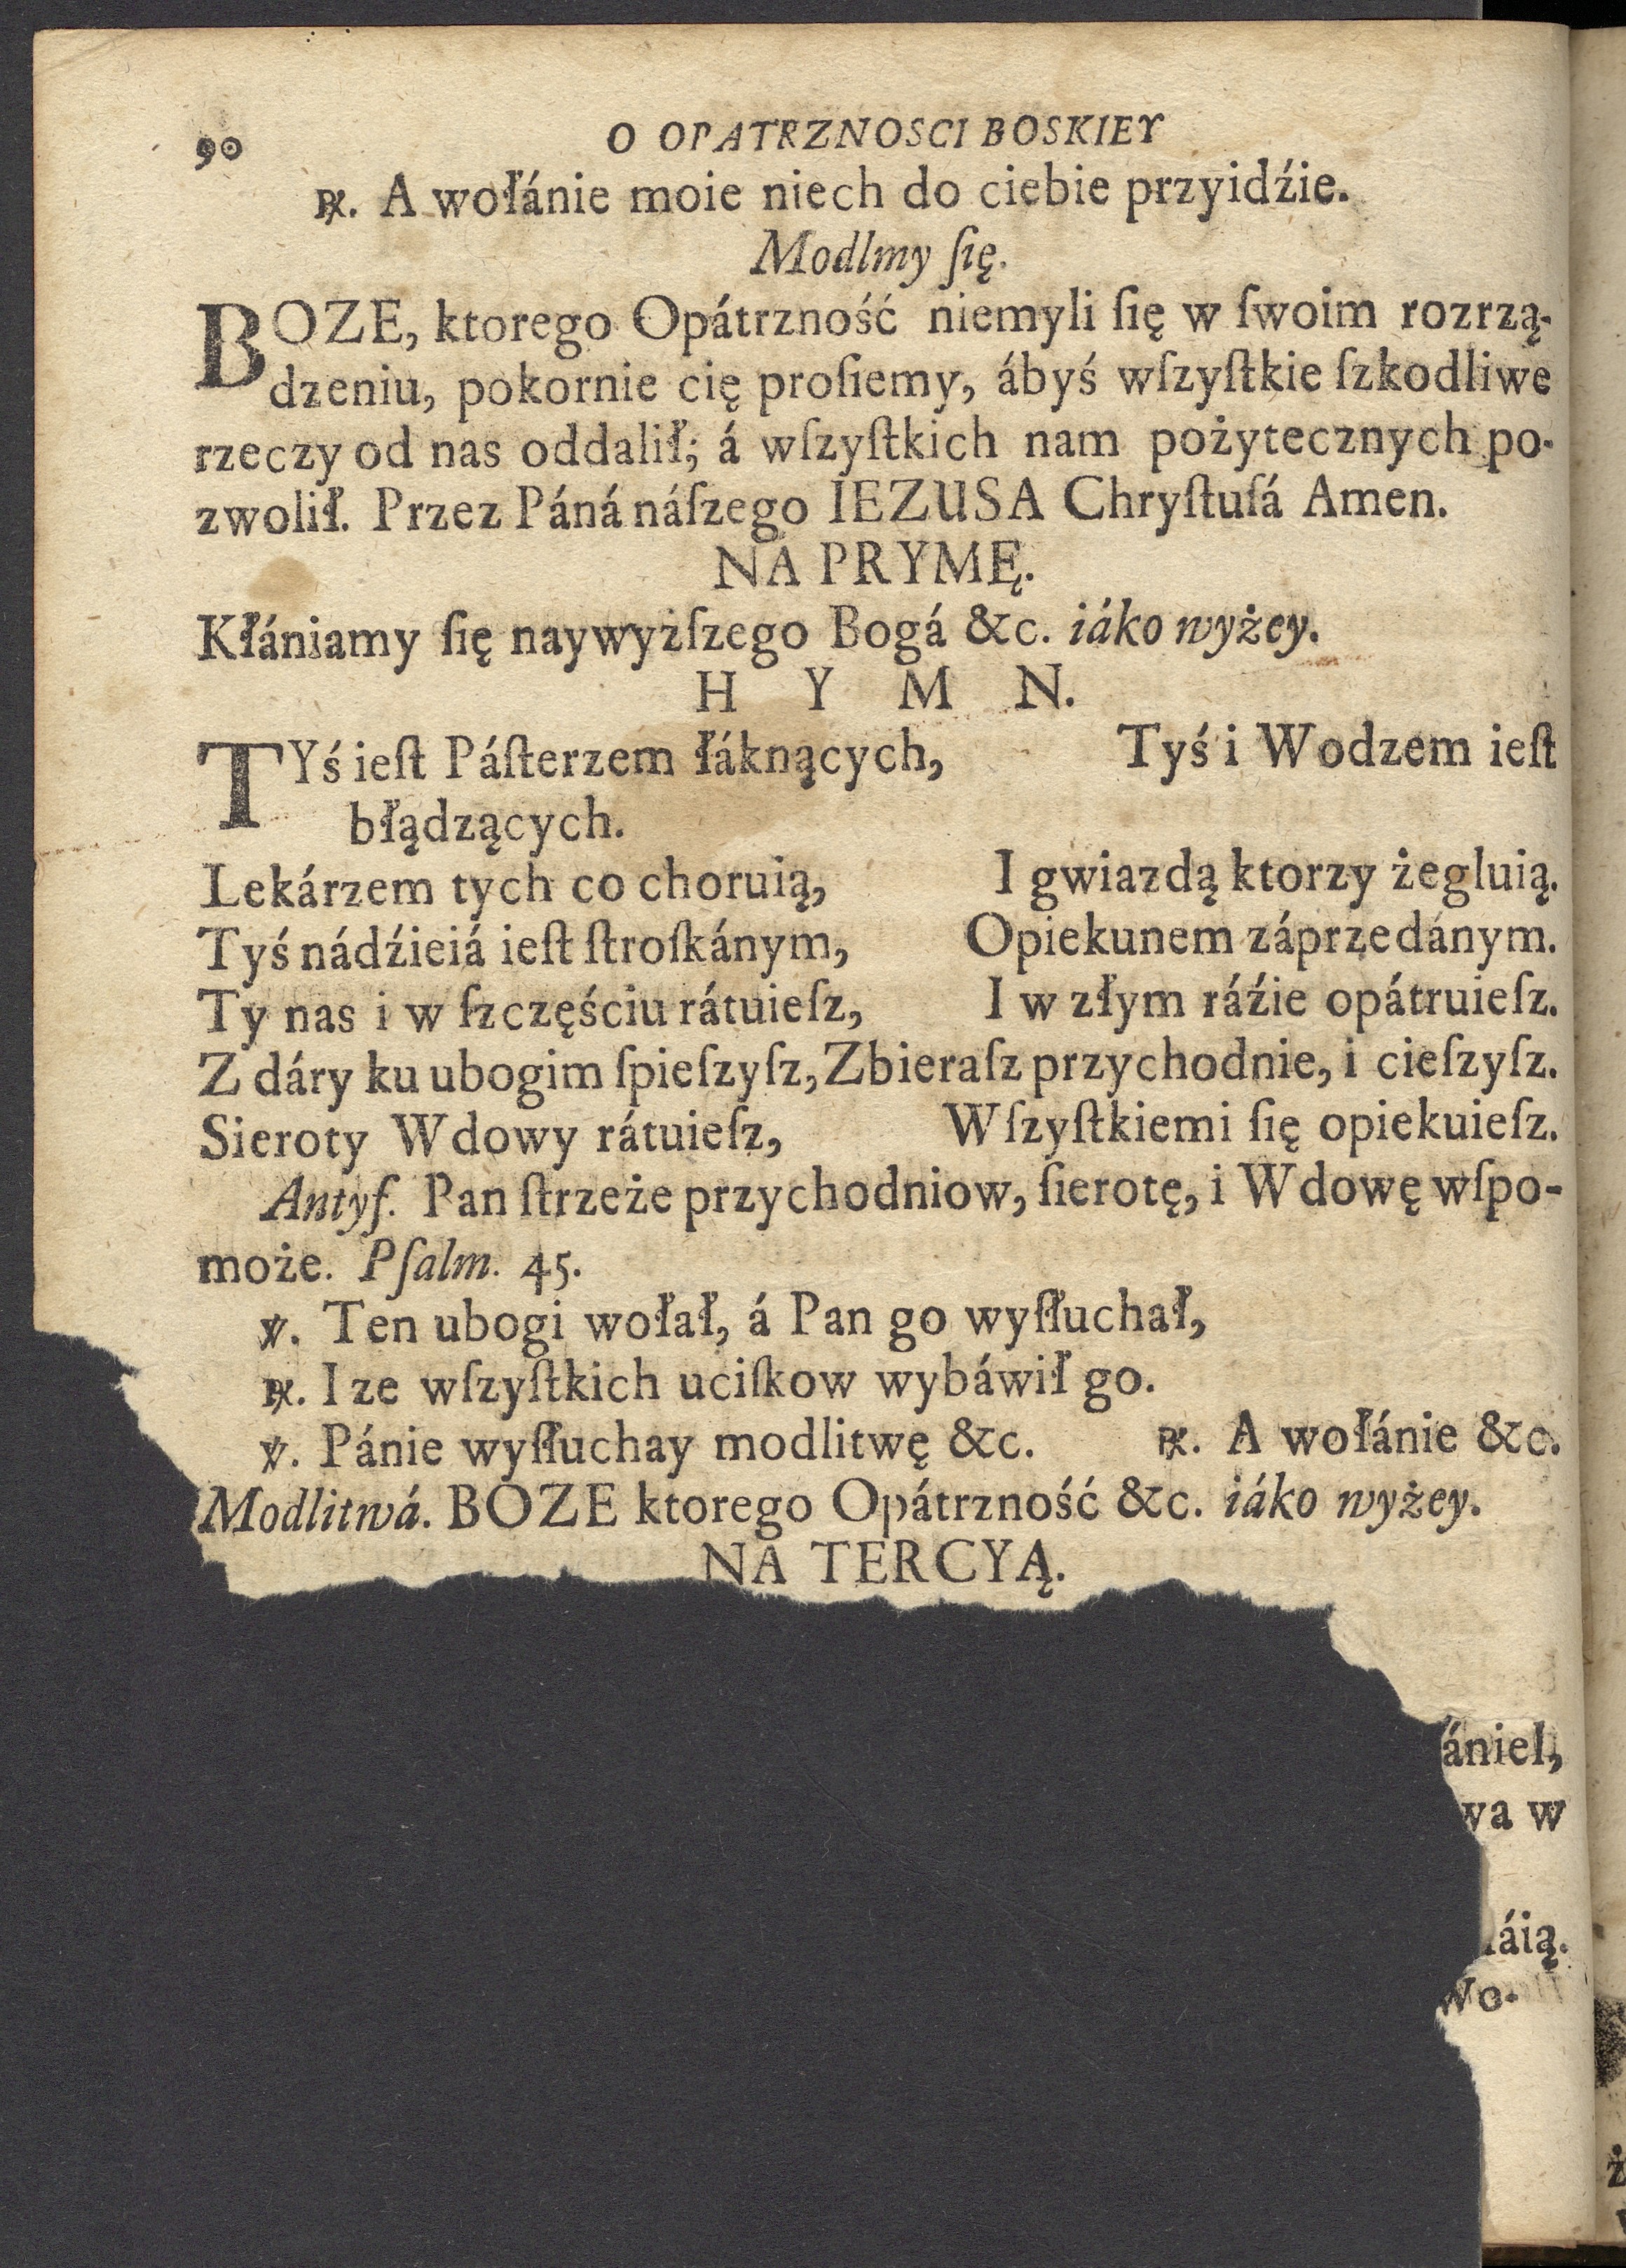 90 O OPATRZNOSCI BOSKIEY
℟. A wołánie moie niech do ciebie przyidźie.
Modlmy ſię.
BOZE, ktorego Opátrzność niemyli ſię w ſwoim rozrzą-
dzeniu, pokornie cię proſiemy, ábyś wſzyſtkie ſzkodliwe
rzeczy od nas oddalił; á wſzyſtkich nam pożytecznych po-
zwolił. Przez Páná náſzego IEZUSA Chryſtuſá Amen.
NA PRYMĘ.
Kłániamy ſię naywyżſzego Bogá &c. iáko wyżey.
H Y M N.
TYś ieſt Páſterzem łáknących, Tyś i Wodzem ieſt
błądzących.
Lekárzem tych co choruią, I gwiazdą ktorzy żegluią.
Tyś nádźieiá ieſt ſtroſkánym, Opiekunem záprzedánym.
Ty nas i w ſzczęściu rátuieſz, I w złym ráźie opátruieſz.
Z dáry ku ubogim ſpieſzyſz, Zbieraſz przychodnie, i cieſzyſz.
Sieroty Wdowy rátuieſz, Wſzyſtkiemi ſię opiekuieſz.
Antyf. Pan ſtrzeże przychodniow, ſierotę, i Wdowę wſpo-
może. Pſalm. 45.
℣. Ten ubogi wołał, á Pan go wyſłuchał,
℟. I ze wſzyſtkich uciſkow wybáwił go.
℣. Pánie wyſłuchay modlitwę &c. ℟. A wołánie &c.
Modlitwá. BOZE ktorego Opátrzność &c. iáko wyżey.
NA TERCYĄ.
ániel,
wa w
áią.
Wo-